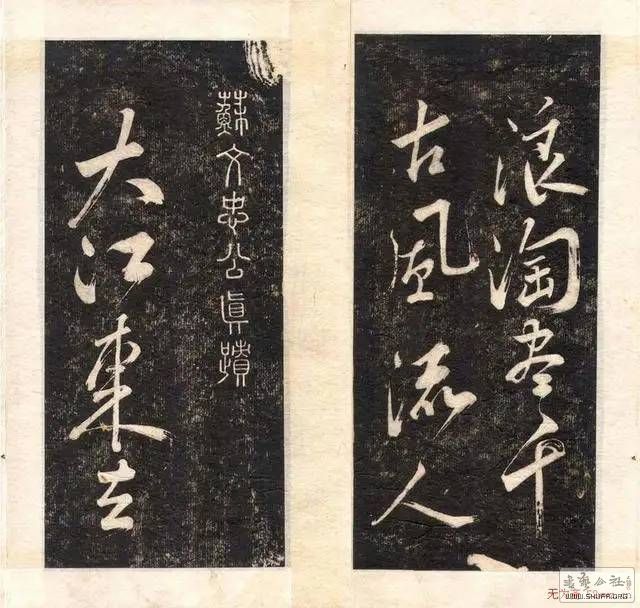 蘇文忠公眞蹟
大江東去
浪淘盡千
古風流人
書藝公社
WWW.SHUFA.ORG